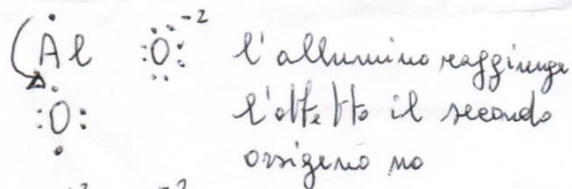 Al O -2 l'allumino raggiunge
:O: l'ottetto il secondo
ossigeno no